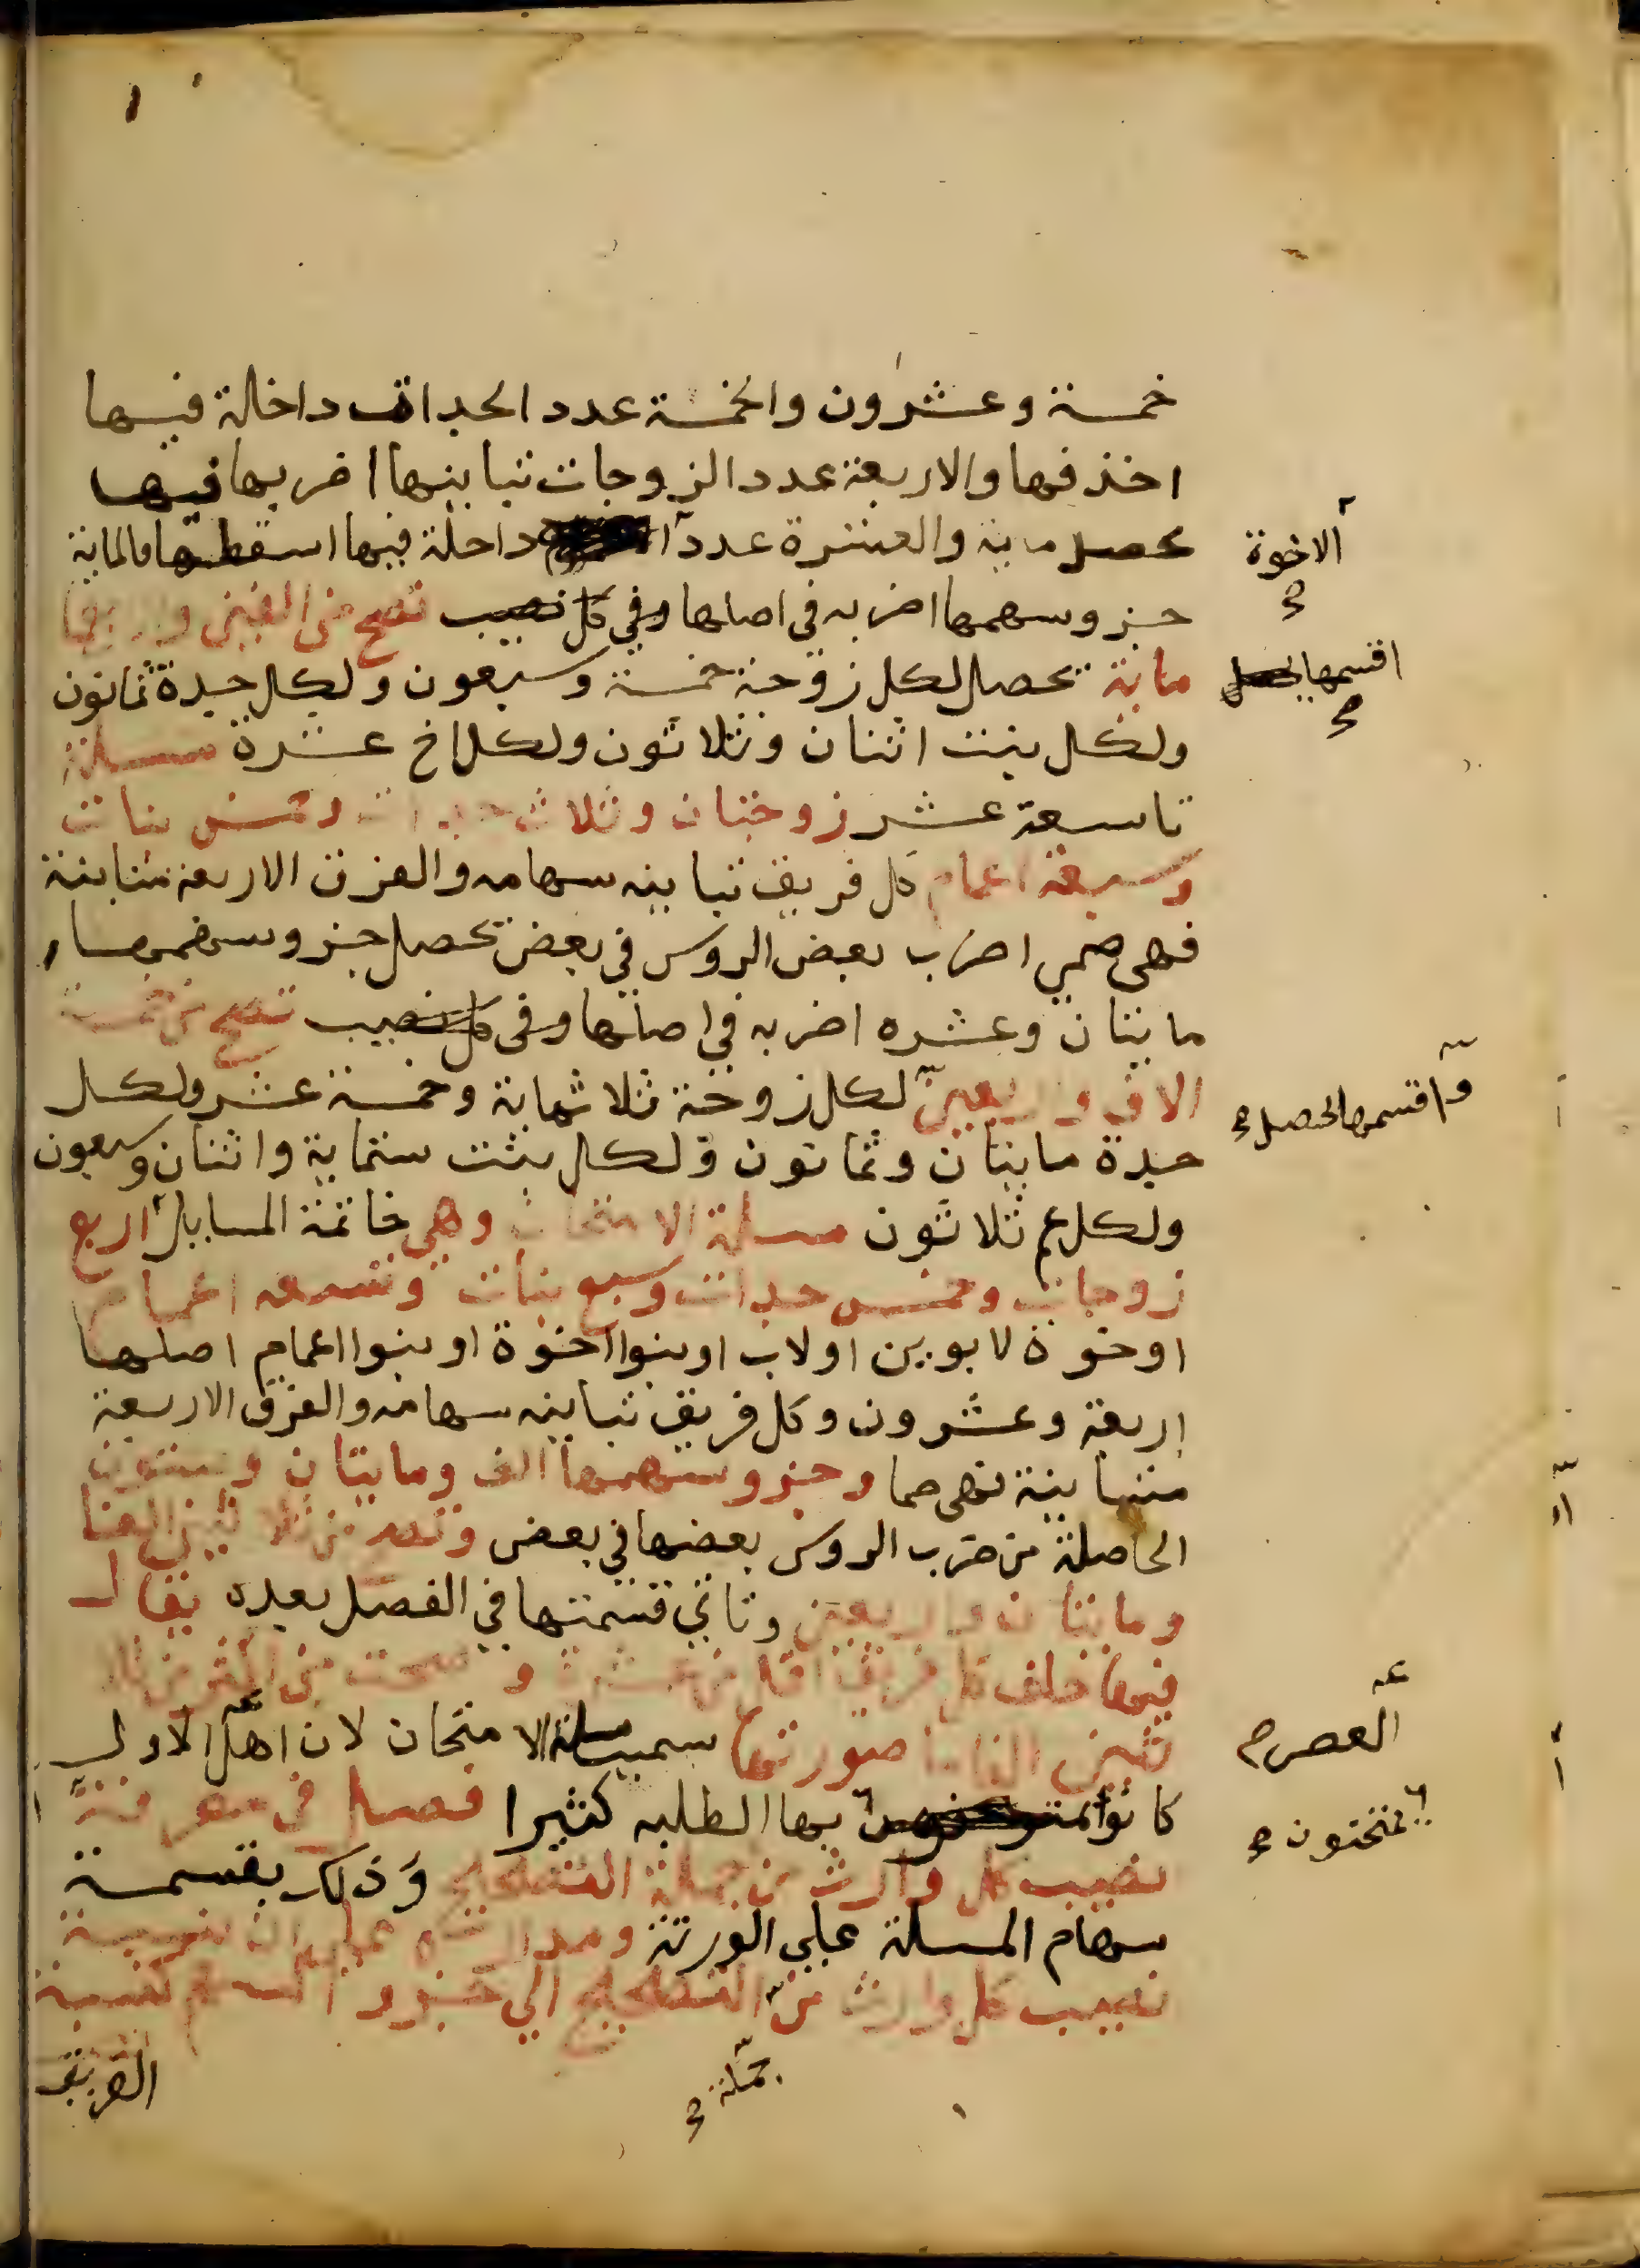 خمسة وعشرون والخمسة عدد الجدات داخلة فيها
احذفها والاربعة عدد الزوجات تباينها اضربها فيها
تحصل ماية والعشرة عدد داخلة فيها اسقطها فالماية
الاخوة
جزو سهمها اضربه في اصلها وفي كل نصيب تصح من الفين واربعما
ماية تحصل لكل زوجة خمسة وسبعون ولكل جدة ثمانون
اقسمها
ولكل بنت اثنان وثلاثون ولكل اخ عشرة مسلة
تاسعة عشر زوجتان وثلاث جدات وخمس بنات
وسبعة اعمام كل فريق تباينه سهامه والفرق الاربعة متباينة
فهي صمي اضرب بعض الروس في بعض تحصل جزو سهمها
مايتان وعشره اضربه في اصلها وفي كل نصيب تصح من خمسة
الاف واربعين لكل زوجة ثلاثماية وخمسة عشر ولكل
واقسمها تحصل
جدة مايتان وثمانون ولكل بنت ستماية واثنان وسبعون
ولكل عم ثلاثون مسلة الامتحان وهي خاتمة المسايل اربع
زوجات وخمس جدات وسبع بنات وتسعه اعمام
اوخوة لابوين اولاب اوبنوا اخوة اوبنوا اعمام اصلها
اربعة وعشرون وكل فريق تباينه سهامه والفرق الاربعة
متباينة فهي صما وجزو سهمها الف ومايتان وستون
الحاصلة من ضرب الروس بعضها في بعض وتصح من ثلاثين الفا
ومايتان واربعين وتاتي قسمتها في الفصل بعده يقال
فيها خلف كل فريق اقل من عشرة وصحت من اكثر من ثلا
ثين الفا صورتها سميت مسلة الامتحان لان اهل الاول
العصر
كانوا بها الطلبه كثيرا فصل في معرفة
يمتحنون
نصيب كل وارث من جملة التصحيح وذلك بقسمة
سهام المسلة على الورثة
نصيب كل وارث من التصحيح الي جزو السهم كنسبة
جملة
الفريق